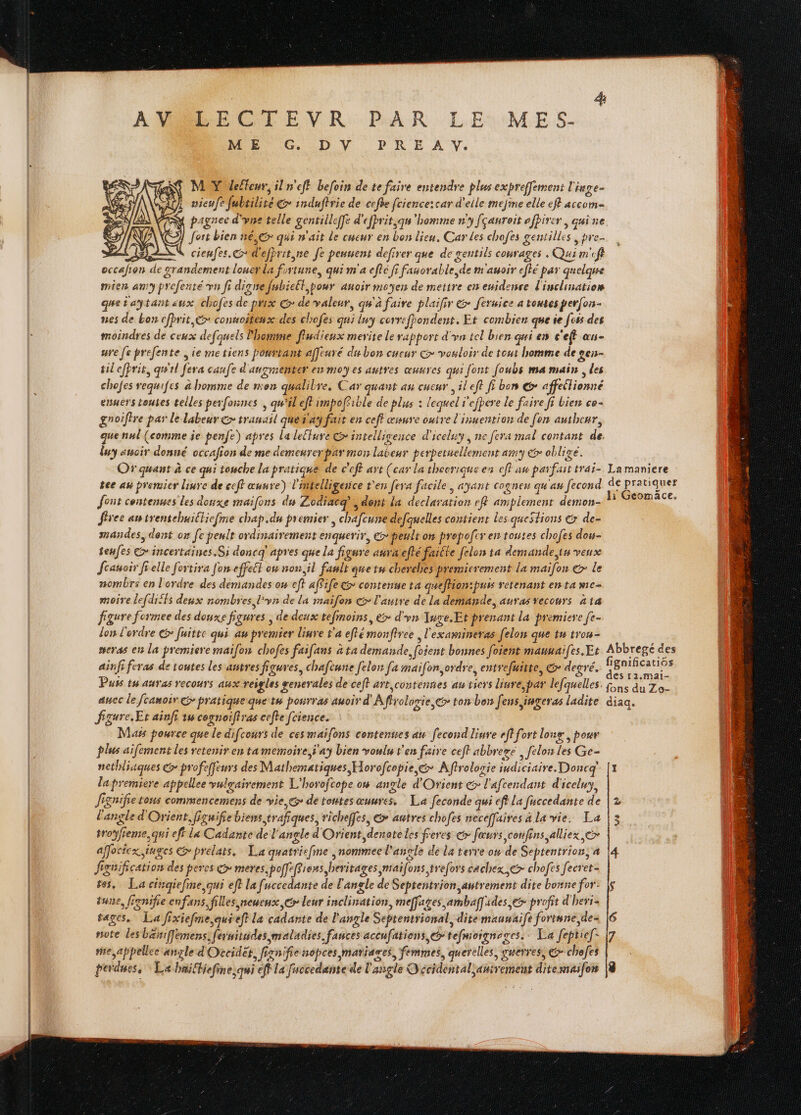 4
AV LECTEVR PAR LE MES-
ME G. DV PREAV.
MY lecteur, il n'est besoin de te faire entendre plus expressement l'inge-
nieuse subtilité & industrie de ceste science: car d'elle mesme elle est accom-
pagnee d'vne telle gentillesse d'esprit, qu'homme n'y sçauroit aspirer, qui ne
soit bien né, & qui n'ait le cueur en bon lieu. Car les choses gentilles, pre-
cieuses, & d'esprit, ne se peuuent desirer que de gentils courages. Qui m'est
occasion de grandement louer la fortune, qui m'a esté si fauorable, de m'auoir esté par quelque
mien amy presenté vn si digne subiect, pour auoir moyen de mettre en euidence l'inclination
que i'ay tant aux choses de prix & de valeur, qu'à faire plaisir & seruice a toutes person-
nes de bon esprit, & connoiteux des choses qui luy correspondent. Et combien que ie sois des
moindres de ceux desquels l'homme studieux merite le rapport d'vn tel bien qui en c'est œu-
ure se presente, ie me tiens pourtant asseuré du bon cueur & vouloir de tout homme de gen-
til esprit, qu'il sera cause d'augmenter en moy es autres œuures qui sont soubs ma main, les
choses requises à homme de mon qualibre. Car quant au cueur, il est si bon & affectionné
enuers toutes telles personnes, qu'il est impossible de plus: lequel i'espere le faire si bien co-
gnoistre par le labeur & trauail que i'ay fait en cest œuure outre l'inuention de son autheur,
que nul (comme ie pense) apres la lecture & intelligence d'iceluy, ne sera mal contant de
luy auoir donné occasion de me demeurer par mon labeur perpetuellement amy & obligé.
Or quant à ce qui touche la pratique de c'est art (car la theorique en est au parfait trai-
tee au premier liure de cest œuure) l'intelligence t'en sera facile, ayant cogneu qu'au second
sont contenues les douxe maisons du Zodiacq', dont la declaration est amplement demon-
stree au trentehuictiesme chap. du premier, chascune desquelles contient les questions & de-
mandes, dont on se peult ordinairement enquerir, & peult on proposer en toutes choses dou-
teuses & incertaines. Si doncq' apres que la figure aura esté faicte selon ta demande, tu veux
sçauoir si elle sortira son effect ou non, il fault que tu cherches premierement la maison & le
nombre en l'ordre des demandes ou est assise & contenue ta question: puis retenant en ta me-
moire lesdicts deux nombres, l'vn de la maison & l'autre de la demande, auras recours à ta
figure formee des douxe figures, de deux tesmoins, & d'vn Iuge. Et prenant la premiere se-
lon l'ordre & suitte qui au premier liure t'a esté monstree, l'examineras selon que tu trou-
ueras en la premiere maison choses faisans à ta demande, soient bonnes soient mauuaises. Et
ainsi feras de toutes les autres figures, chascune selon sa maison, ordre, entresuitte, & degré.
Puis tu auras recours aux reigles generales de cest art, contenues au tiers liure, par lesquelles
auec le scauoir & pratique que tu pourras auoir d'Astrologie, & ton bon sens, iugeras ladite
figure. Et ainsi tu cognoistras ceste science.
Mais pource que le discours de ces maisons contenues au second liure est fort long, pour
plus aisement les retenir en ta memoire, i'ay bien voulu t'en faire cest abbregé, selon les Ge-
nethliaques & professeurs des Mathematiques, Horoscopie, & Astrologie iudiciaire. Doncq'
la premiere appellee vulgairement L'horoscope ou angle d'Orient & l'ascendant d'iceluy,
signifie tous commencemens de vie, & de toutes œuures. La seconde qui est la succedante de
l'angle d'Orient, signifie biens, trafiques, richesses, & autres choses necessaires à la vie. La
troysieme, qui est la Cadante de l'angle d'Orient, denote les freres & sœurs, cousins, alliex, &
associex, iuges & prelats. La quatriesme, nommee l'angle de la terre ou de Septentrion, a
signification des peres & meres, possessions, heritages, maisons, tresors cachex, & choses secret-
tes. La cinqiesme, qui est la succedante de l'angle de Septentrion, autrement dite bonne for-
tune, signifie enfans, filles, neueux, & leur inclination, messages, ambassades, & profit d'heri-
tages. La sixiesme, qui est la cadante de l'angle Septentrional, dite mauuaise fortune, de-
note les bānissemens, seruitudes, maladies, fauces accusations, & tesmoignages. La septies-
me, appellee angle d'Occidēt, signifie nopces, mariages, femmes, querelles, guerres, & choses
perdues. La huictiesme, qui est la succedante de l'angle Occidental, autrement dite maison
La maniere
de pratiquer
li Geomāce.
Abbregé des
significatiōs
des 12. mai-
sons du Zo-
diaq.
1
2
3
4
5
6
7
8